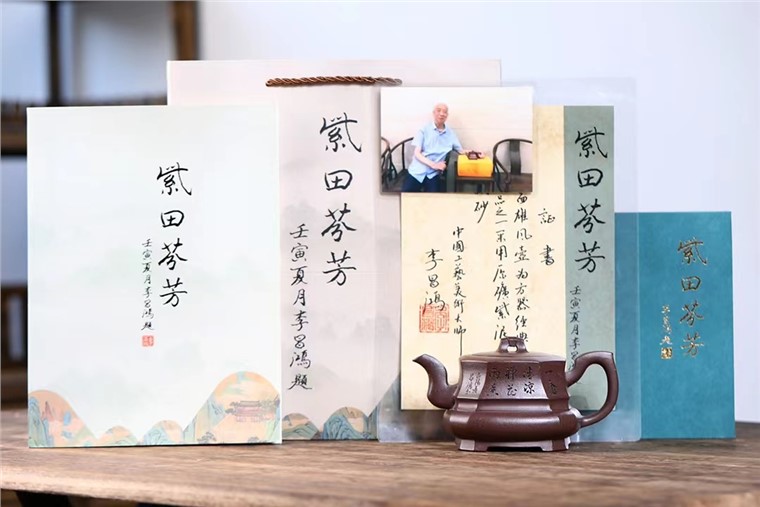 紫田芬芳
壬寅夏月李昌鸿题
紫田芬芳
壬寅夏月李昌鸿题
紫田芬芳
壬寅夏月李昌
证书
雄风壶为方器经典
品之一采用原矿紫泥
砂
中国工艺美术大师
李昌鸿
紫田芬芳